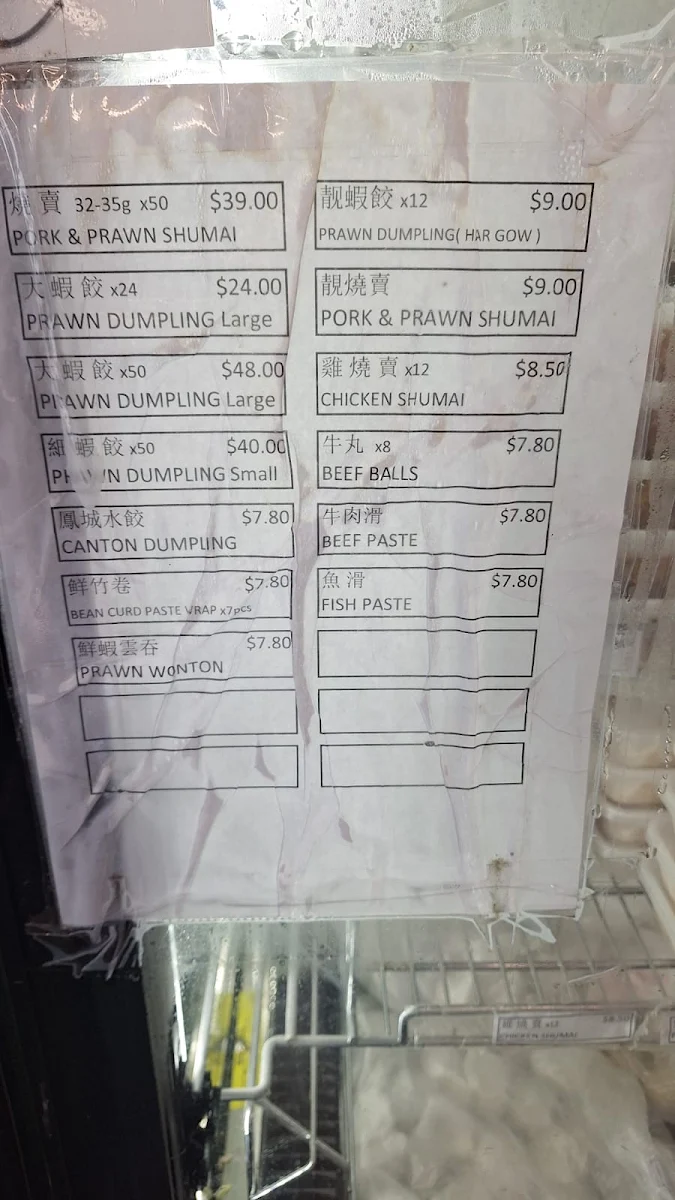 燒賣 32-35g x50 $39.00
PORK & PRAWN SHUMAI
大蝦餃 x24 $24.00
PRAWN DUMPLING Large
大蝦餃 x50 $48.00
PRAWN DUMPLING Large
細蝦餃 x50 $40.00
PRAWN DUMPLING Small
鳳城水餃 $7.80
CANTON DUMPLING
鮮竹卷 $7.80
BEAN CURD PASTE VRAP x7pcs
鮮蝦雲吞 $7.80
PRAWN WONTON
靓蝦餃 x12 $9.00
PRAWN DUMPLING( HAR GOW )
靚燒賣 $9.00
PORK & PRAWN SHUMAI
雞燒賣 x12 $8.50
CHICKEN SHUMAI
牛丸 x8 $7.80
BEEF BALLS
牛肉滑 $7.80
BEEF PASTE
魚滑 $7.80
FISH PASTE
雞燒賣 x12 $8.50
CHICKEN SHUMAI